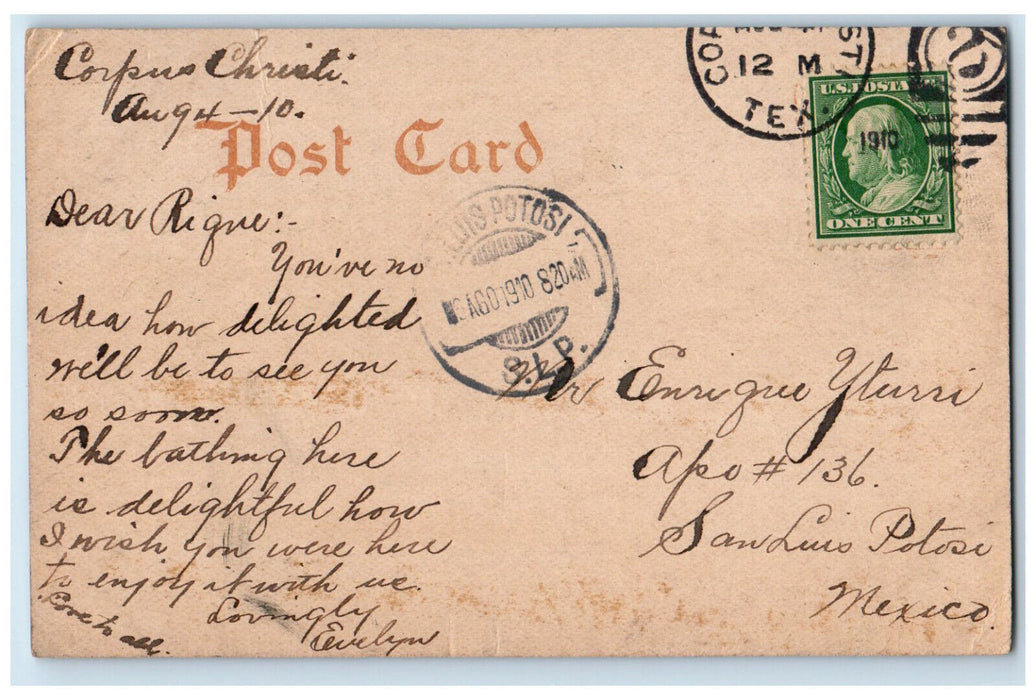 Corpus Christi.
Aug 4-10.
Post Card
12 M
TEX.
U.S. POSTA
1910
ONE CENT
Dear Rique:-
You've no
idea how delighted
we'll be to see you
so soon.
The bathing here
is delightful how
I wish you were here
to enjoy it with us.
Lovingly
Evelyn
Love to all.
LUIS POTOSI
AGO 1910 8 20 AM
S.L.P.
Mr Enrique Yturri
Apo # 136.
San Luis Potosi
Mexico.